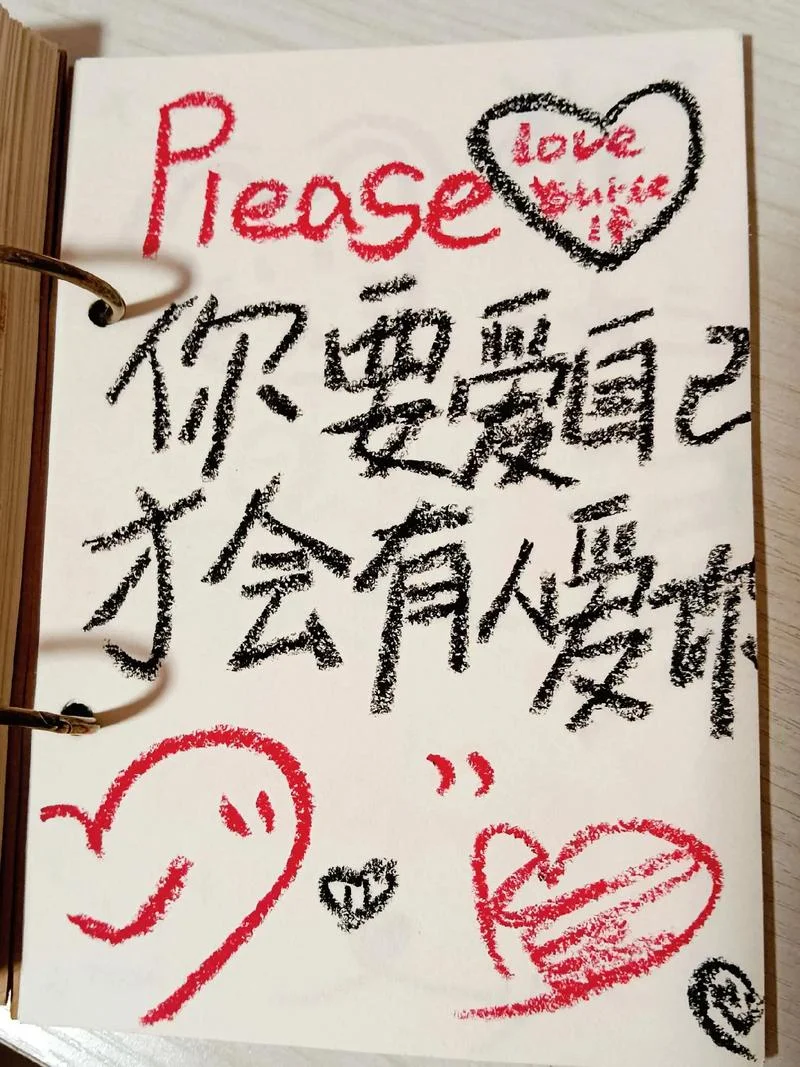 Please
love
yourse
lf
你要爱自己
才会有人爱你